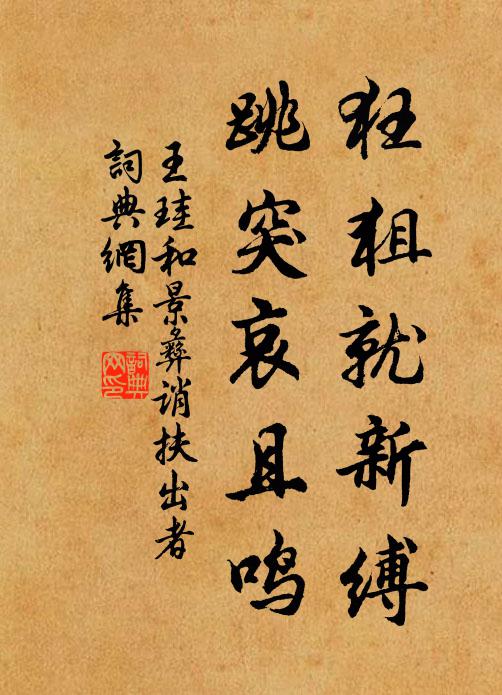 狂狙就新缚
跳突哀且鸣
王珪和景彝誚扶出者
詞典網集
詞典网印